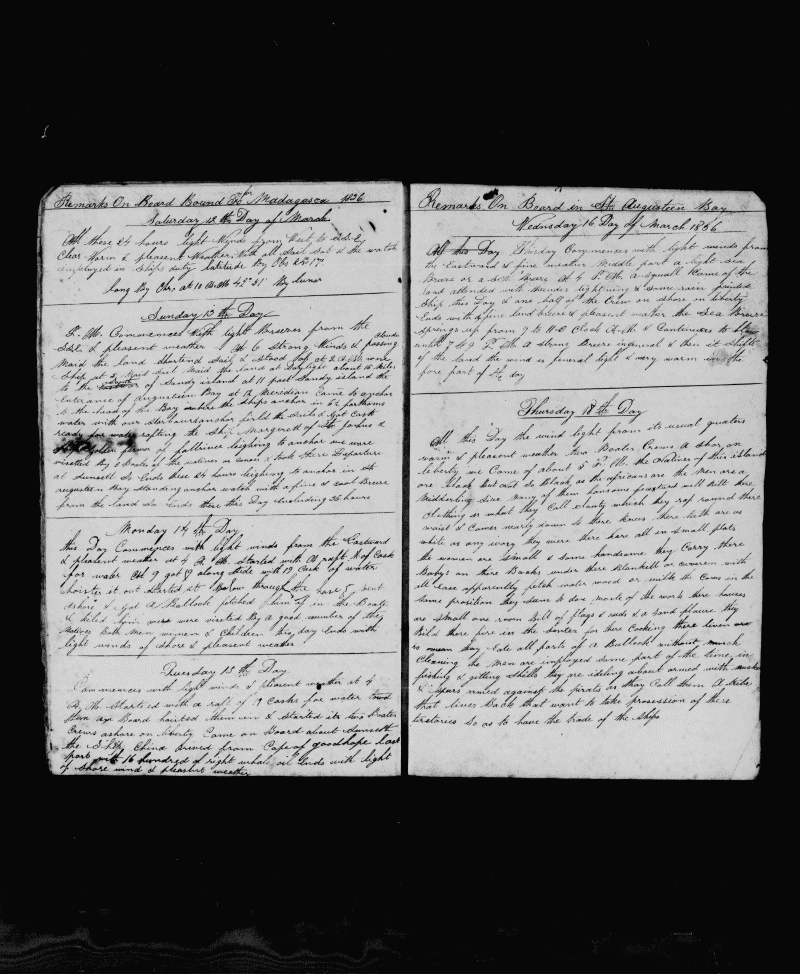 Remarks On Board Bound To for Madagasca 1836
Saturday 12th Day of March
All these 24 hours light Wynds from West to
Clear Warm & pleasent Weather With all Sail Out & the watch
employed in Ships duty Latitude By Obs 22 17
long By Chro at 10 45 51 By Luner
Sunday 13th Day
P. M. Commences With light Breezes from the
& pleasent weather At 6 Strong Winds & passing Clouds
Maid the land Shortend Sail & Stood of at 2 A M wore
Ship at 5 Maid Sail Maid the land at Daylight about 10 Miles
to the South of Sandy island at 11 past Sandy island the
Entrance of Augusteen Bay at Meridien Came to anchor
to the head of the Bay where the Ships anchor in 6½ farthoms
water with our Starboard anchor furld the Sails & Got Cask
ready for water rafting the Ship Margrett of
leighing to anchor we were
viseted By 3 Boats of the natives as canoes & took there Departure
at Sunsett So Ends these 24 hours leighing to anchor in St
augusteen Bay Standing anchor watch with a fine & cool Breeze
from the land So Ends these this Day Including 36 hours
Monday 14th Day
this Day Commences with light winds from the Eastward
& pleasent weather at 4 A M Started with A raft of Cask
for water At 9 got along Side with 19 Cask of water
hoisted it out Started it Down through the hose & sent
ashore & Got A Bullock fetched him of in the Boats
& kiled him were were visited By a good number of the
natives Both Men women & Children this day Ends with
light winds of Shore & pleasent weather
Tuesday 15th Day
Commences with light winds & pleasent weather at 4
A. M. Started with a raft of 9 Casks for water towd
them a Board hoisted them in & Started it two Boates
Crews ashore on liberty Came on Board about Sunsett
the Ship China arived from Cape of goodhope last
port with 16 hundred of right whale oil Ends with light
of Shore wind & pleasent weather
Remarks On Board in St Augusteen Bay
Wednsday 16 Day of March 1836
All this Day Commences with light winds from
the Eastward & fine weather Middle part a light Sea
Breze or a Shore At 4 P. M. A Squall Came of the
land attended with thunder lightning & some rain painted
Ship this Day & one half of the Crew on Shore on liberty
Ends with a fine land breeze & pleasent wather the Sea Breeze
Springs up from 9 to 11 O Clock A M & Continues to Blow
untill 7 & 9 P. M. A Strong Breeze in general & then it Shifts
of the land the wind is general light & very warm in the
fore part of the day
Thursday 17th Day
All this Day the wind light from its usual quaters
warm & pleasent weather two Boates Crews A Shor on
leberty we Came of about 5 P. M. the Natives of this island
are Black But not So Black as the africans are the Men are a
Midderling Size many of them hansome feuterd well Bilt there
Clothing is what they Call clouty which they rap round there
waist & Comes nearly down to there knees there teeth are as
white as any ivory they were there hare all in Small plats
the women are Small & Some handsome they Carry there
Babys on there Backs under there Blankett or coveren with
all ease apparently fetch water wood or milk the Cows in the
same prosition they seem to doe most of the work there houses
are Small one room bilt of flags & rods & a Sand floore they
Bild there fire in the Senter for there Cooking there liven
is mean they Eate all parts of a Bullock without much
Cleaning the Men are imployed Some part of the time in
fishing & gitting Shells they are ideling about armed with muskets
& Spers armed against the pirats as they Call them A tribe
that lives Back that want to take prosession of these
teretories So as to have the trade of the Ships